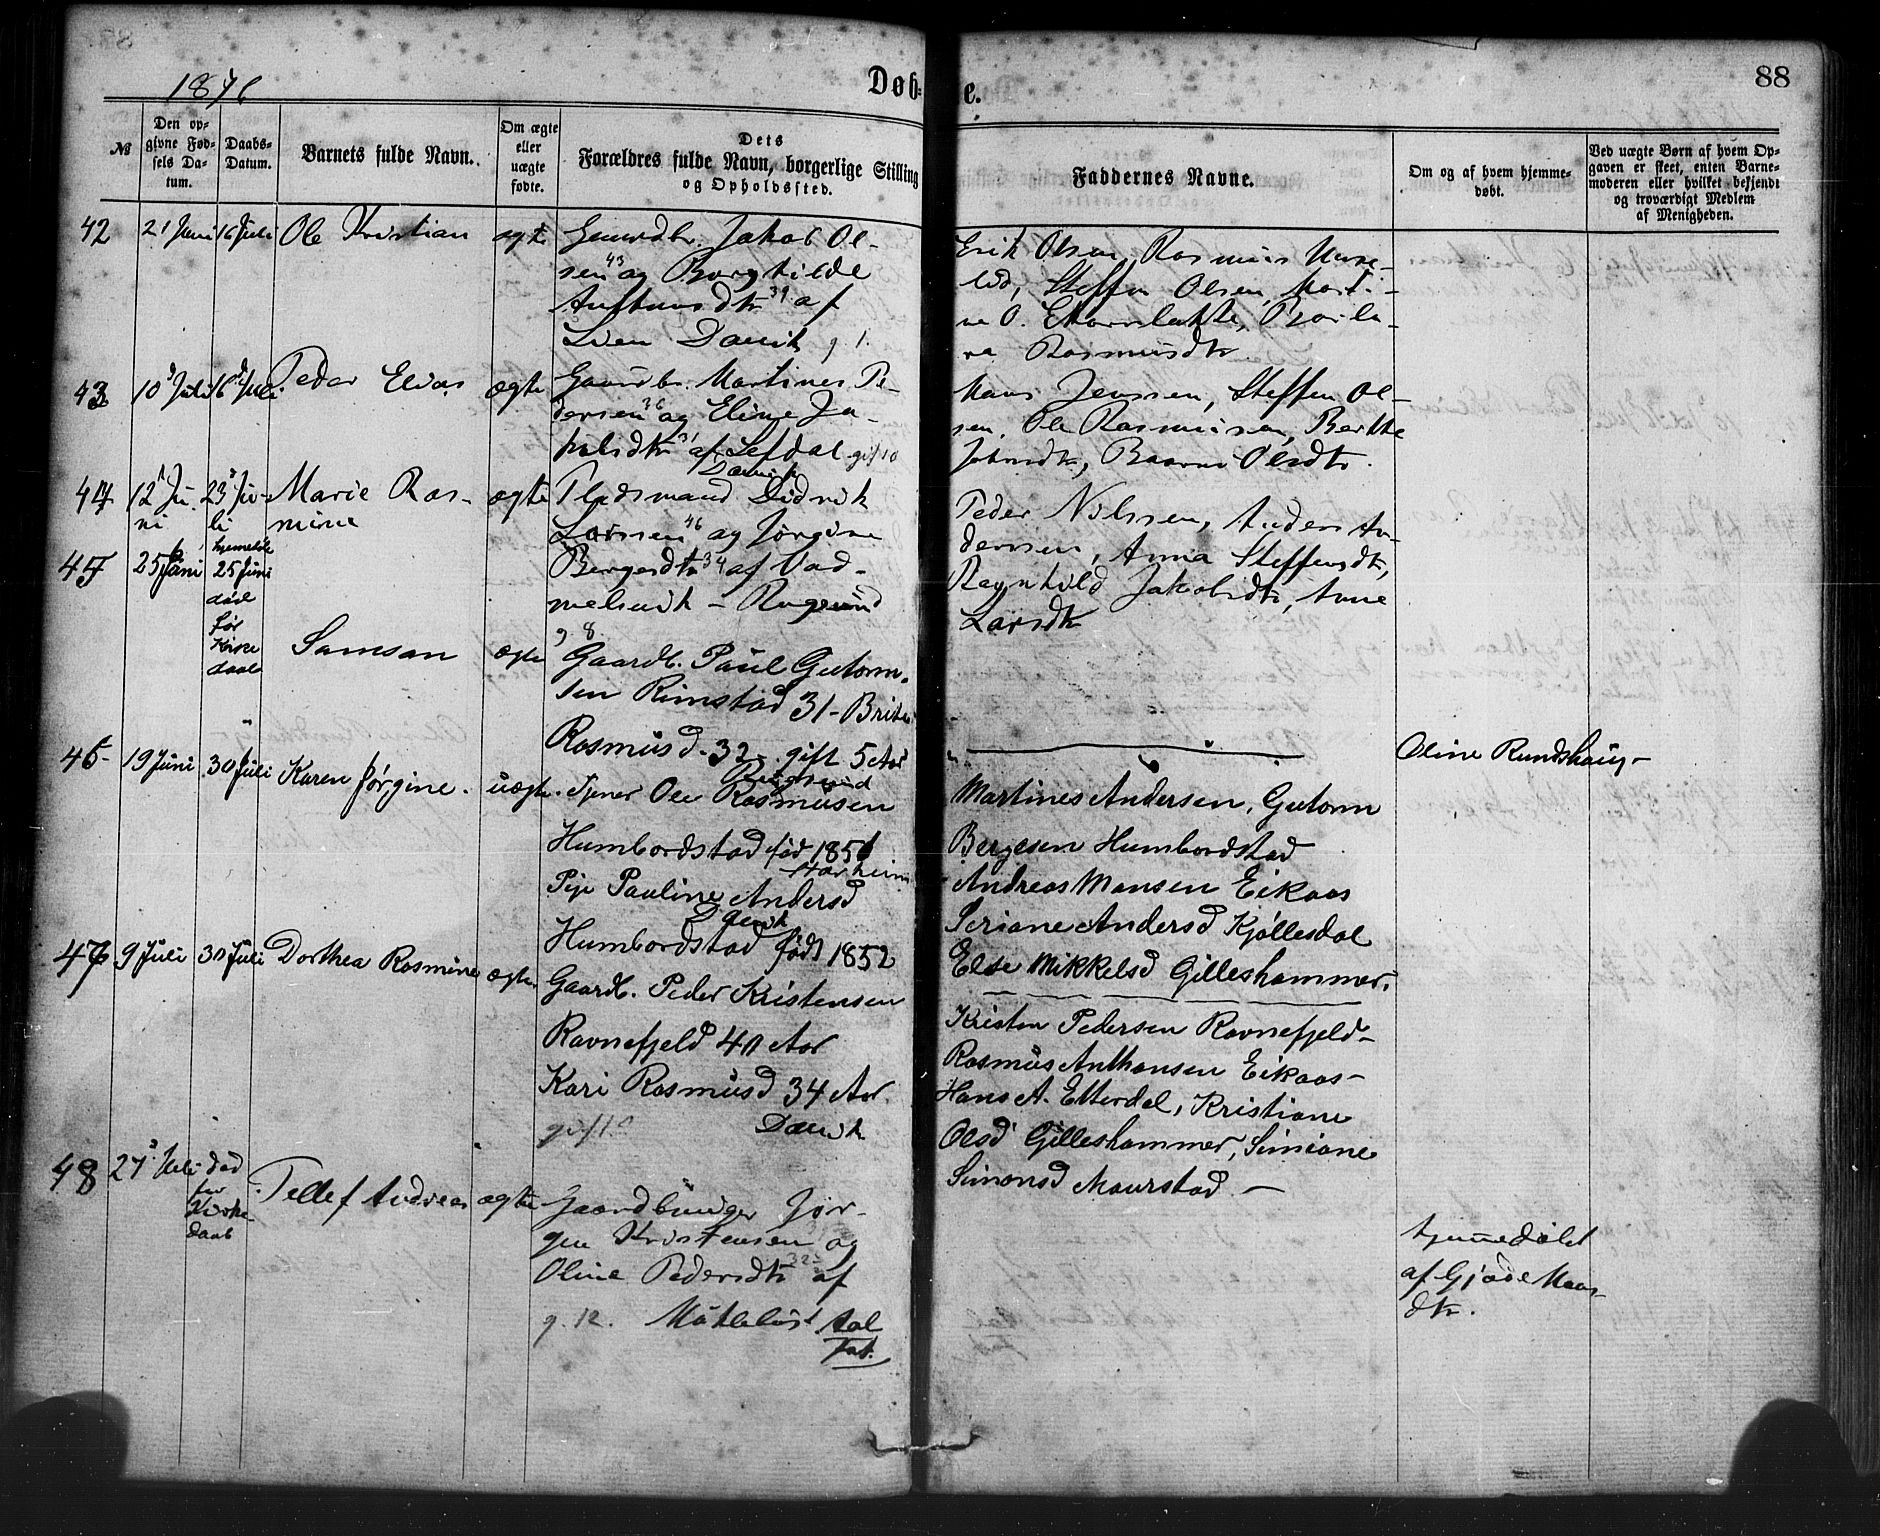 1876
Døb-
e.
88
№
Den op-
givne Fød-
sels Da-
tum.
Daabs-
Datum.
Barnets fulde Navn.
Om ægte
eller
uægte
fødte.
Dets
Forældres fulde Navn, borgerlige Stilling
og Opholdssted.
Faddernes Navne.
Om og af hvem hjemme-
døbt.
Ved uægte Børn af hvem Op-
gaven er skeet, enten Barne-
moderen eller hvilket bekjendt
og troværdigt Medlem
af Menigheden.
42 21 Juni 16 Juli Ole Kristian ægte
Jakob Ol-
sen 43 og
39 af
Davik g 1.
Erik Olsen, Rasmus
Steffen Olsen, Marti-
ne O.
Rasmusdtr
43 10 Juli 16 Juli Peder Elias ægte
Gaardbr. Martines Pe-
dersen 36 og Eline Ja-
kobsdtr 31 af Lefdal gift 10
Davik
Hans Jenssen, Steffen Ol-
sen, Ole Rasmussen, Berthe
Olsdtr.
44 12 Ju-
ni
23 Ju-
li
Marie Ras-
mine
ægte
Pladsmand Didrik
Larssen 46 og Jørgine
Bergesdtr 34 af Vad-
melsvik - Rugsund
g. 8.
Peder Nilssen, Anders An-
derssen, Anna Steffensdtr,
Ragnhild Jakobsdtr, Anne
Larsdtr
45 25 Juni
hjemedøbt
25 Juni
død
før
Kirke
daab
Samson ægte
Gaardb. Paul Gutorm-
sen Rimstad 31 - Brite
Rasmusd - 32 - gift 5 Aar
Rugsund
Oline Rundshaug -
46 19 Juni 30 Juli Karen Jørgine. uægte.
Tjener Ole Rasmusen
Humbordstad fød 1851
Hornheim
Pige Pauline Andersd
Humbordstad født 1852
Davik
Martines Andersen, Gutorm
Bergesen Humbordstad
Andreas Monsen Eikaas
Seriane Andersd Kjøllesdal
Else Mikkelsd Gilleshammer.
47 9 Juli 30 Juli Dorthea Rasmine ægte
Gaardb. Peder Kristensen
Ravnefjeld 40 Aar
Kari Rasmusd 34 Aar.
gift
Davik
Kristen Pedersen Ravnefjeld -
Rasmus Anthonsen Eikaas -
Hans A. Etterdal, Kristiane
Olsd Gilleshammer, Simiane
Simonsd Maurstad -
48 27 Juli
død
før
Kirke-
daab
Tellef Andreas ægte
Gaardbruger Jør-
gen Kristensen og
Oline Pedersdtr 32 af
g. 12.
Aal
hjemmedøbt
af Gjøde Mons-
dtr.